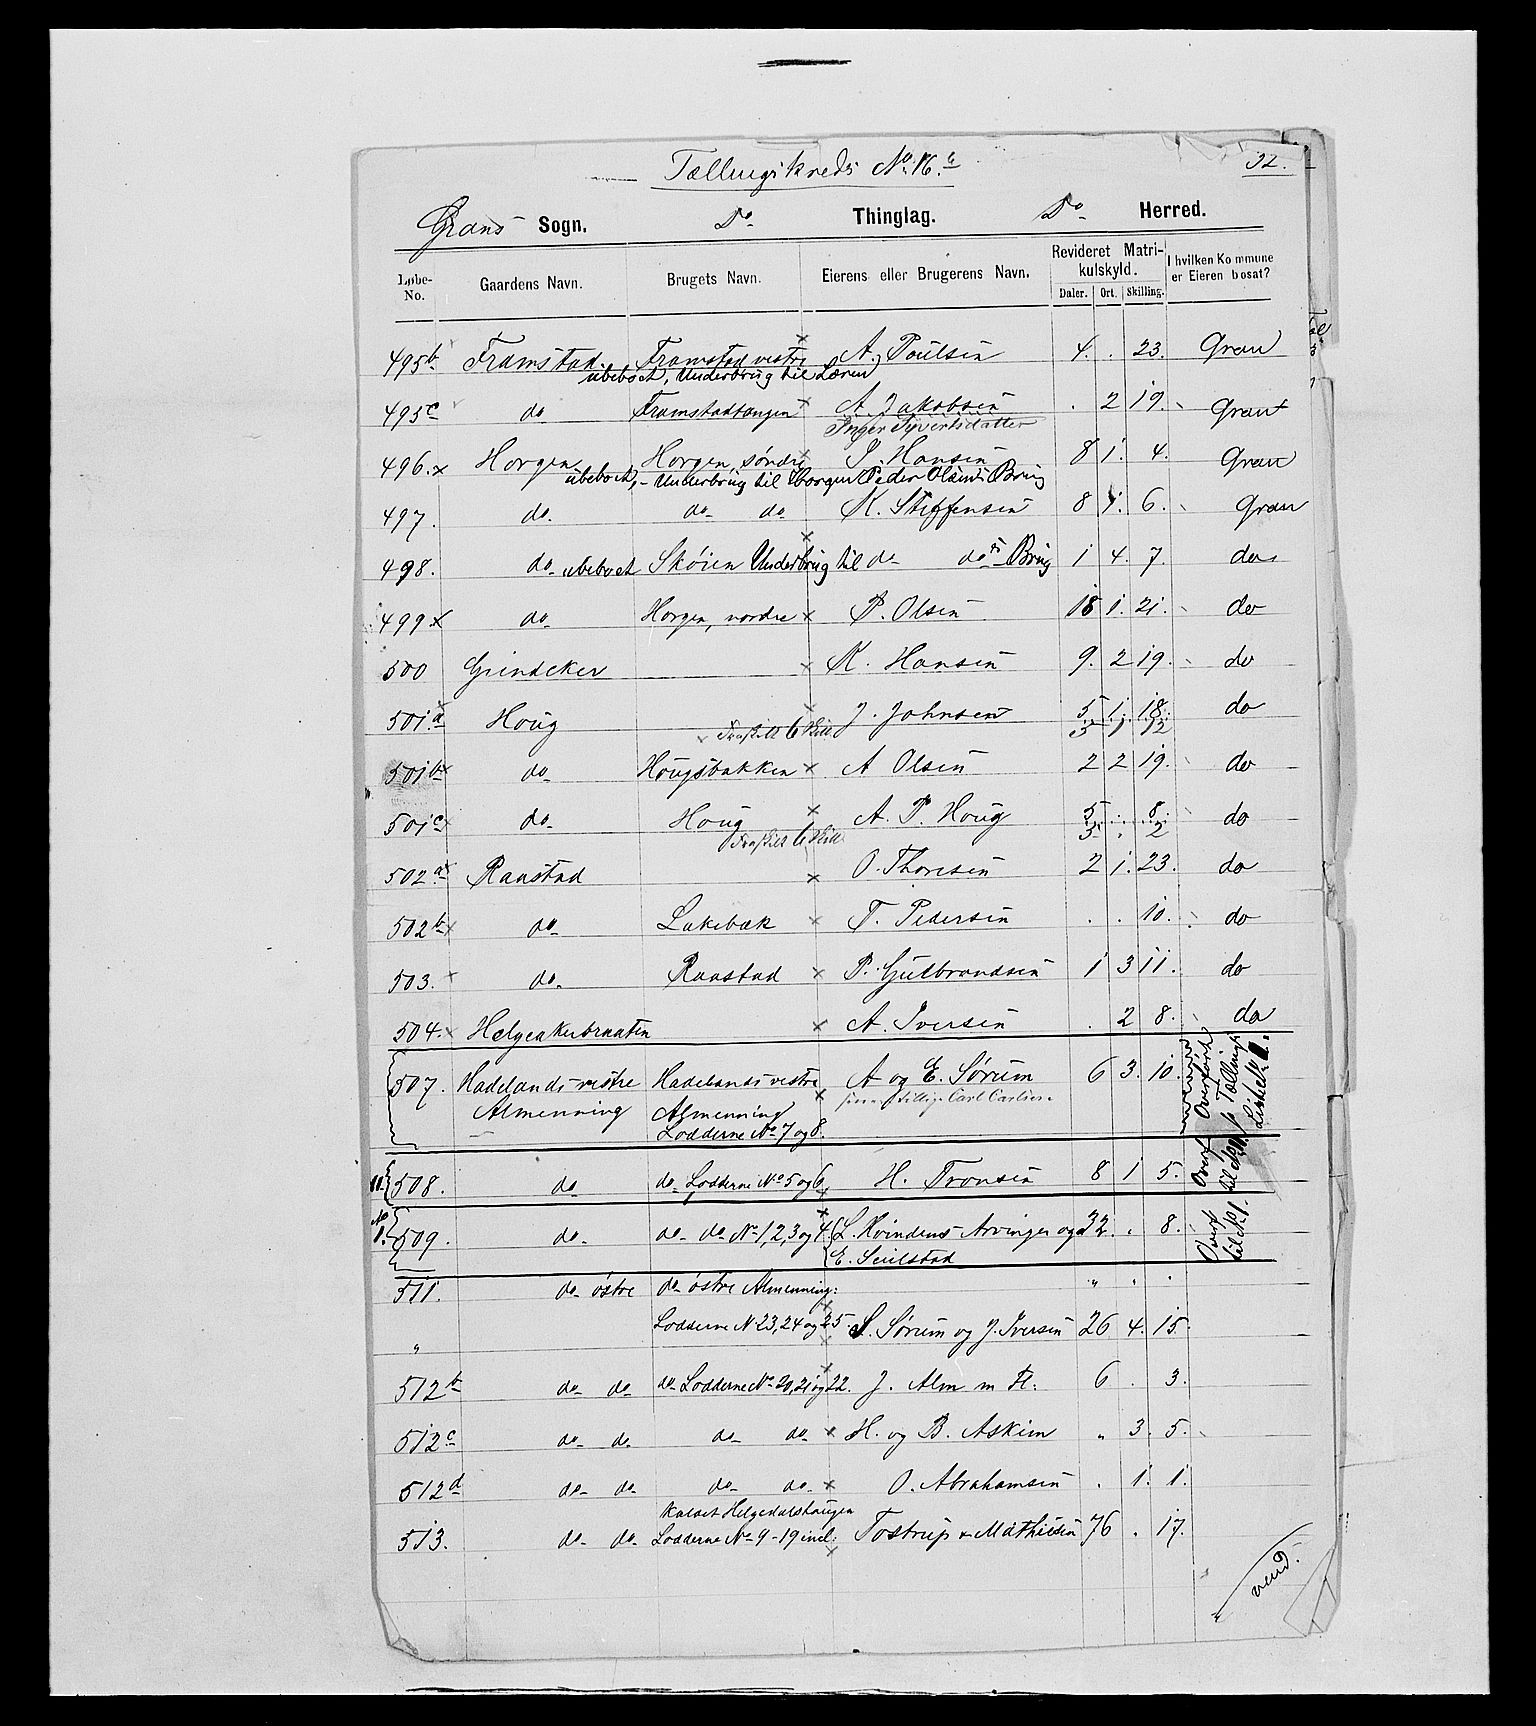 Tællingskreds No. 16.
32.
Grans Sogn. Do Thinglag. Do Herred.
Løbe-No. Gaardens Navn. Brugets Navn. Eierens eller Brugerens Navn. Revideret Matrikulskyld. Daler. Ort. Skilling. I hvilken Kommune er Eieren bosat?
495b Framstad Framstad vestre x A. Poulsen 4. . 23. Gran
ubeboet, Underbrug til Læren
495c do Framstadtangen x A. Jakobsen . 2 19. Gran
Inger Syvertsdatter
496. x Horgen Horgen, søndre x J. Hansen 8 1. 4. Gran
ubeboet, - Underbrug til Horgen Peder Olsens Brug
497. do. do do K. Steffensen 8 1. 6. Gran
498. do ubeboet Skøien Underbrug til do do s Brug 1 4. 7. do
499 x do Horgen, nordre x P. Olsen 18 1. 21. do
500 Grindeker x K. Hansen 9. 2 19. do
501.a Houg x J. Johnsen 5 1. 18. do
6 Skill 5 1 12
501b x do Hougsbakken x A Olsen 2 2 19. do
501c x do Houg x A. P. Houg 5 . 8. do
6 Skill 5 . 2
502a Raastad x O. Thoresen 2 1. 23. do
502b x do Lakebæk x T. Pedersen . . 10. do
503. x do Raastad x P. Gulbrandsen 1 3 11. do
504. x Helgeakerbraaten x A. Iversen . 2 8. do
507. Hadelands vestre Hadelands vestre x A og E. Sørum 6 3. 10. Overført til Tællings
Almenning Almenning Carl Carlsen
Lodderne No 7 og 8.
508. do do Lodderne No 5 og 6 x H. Tronsen 8 1 5. Overf til
No 1. 509. do do do No 1, 2, 3 og 4. x L. Kvindens Arvinger og 32. . 8. Overf til No 1.
E. Seielstad
511. do østre do østre Almenning: " . .
" Lodderne No 23, 24 og 25 x S. Sørum og J. Iversen 26 4. 15.
512b do do do Lodderne No 20, 21 og 22. x J. Alm m Fl: 6 . 3.
512c do do do do x H. og B. Askim " 3. 5.
512d do do do do x O. Abrahamsen . 1. 1.
kaldet Helgedalshaugen
513. do do Lodderne No 9 - 19 incl: x Tostrup & Mathiesen 76 . 17.
vend.